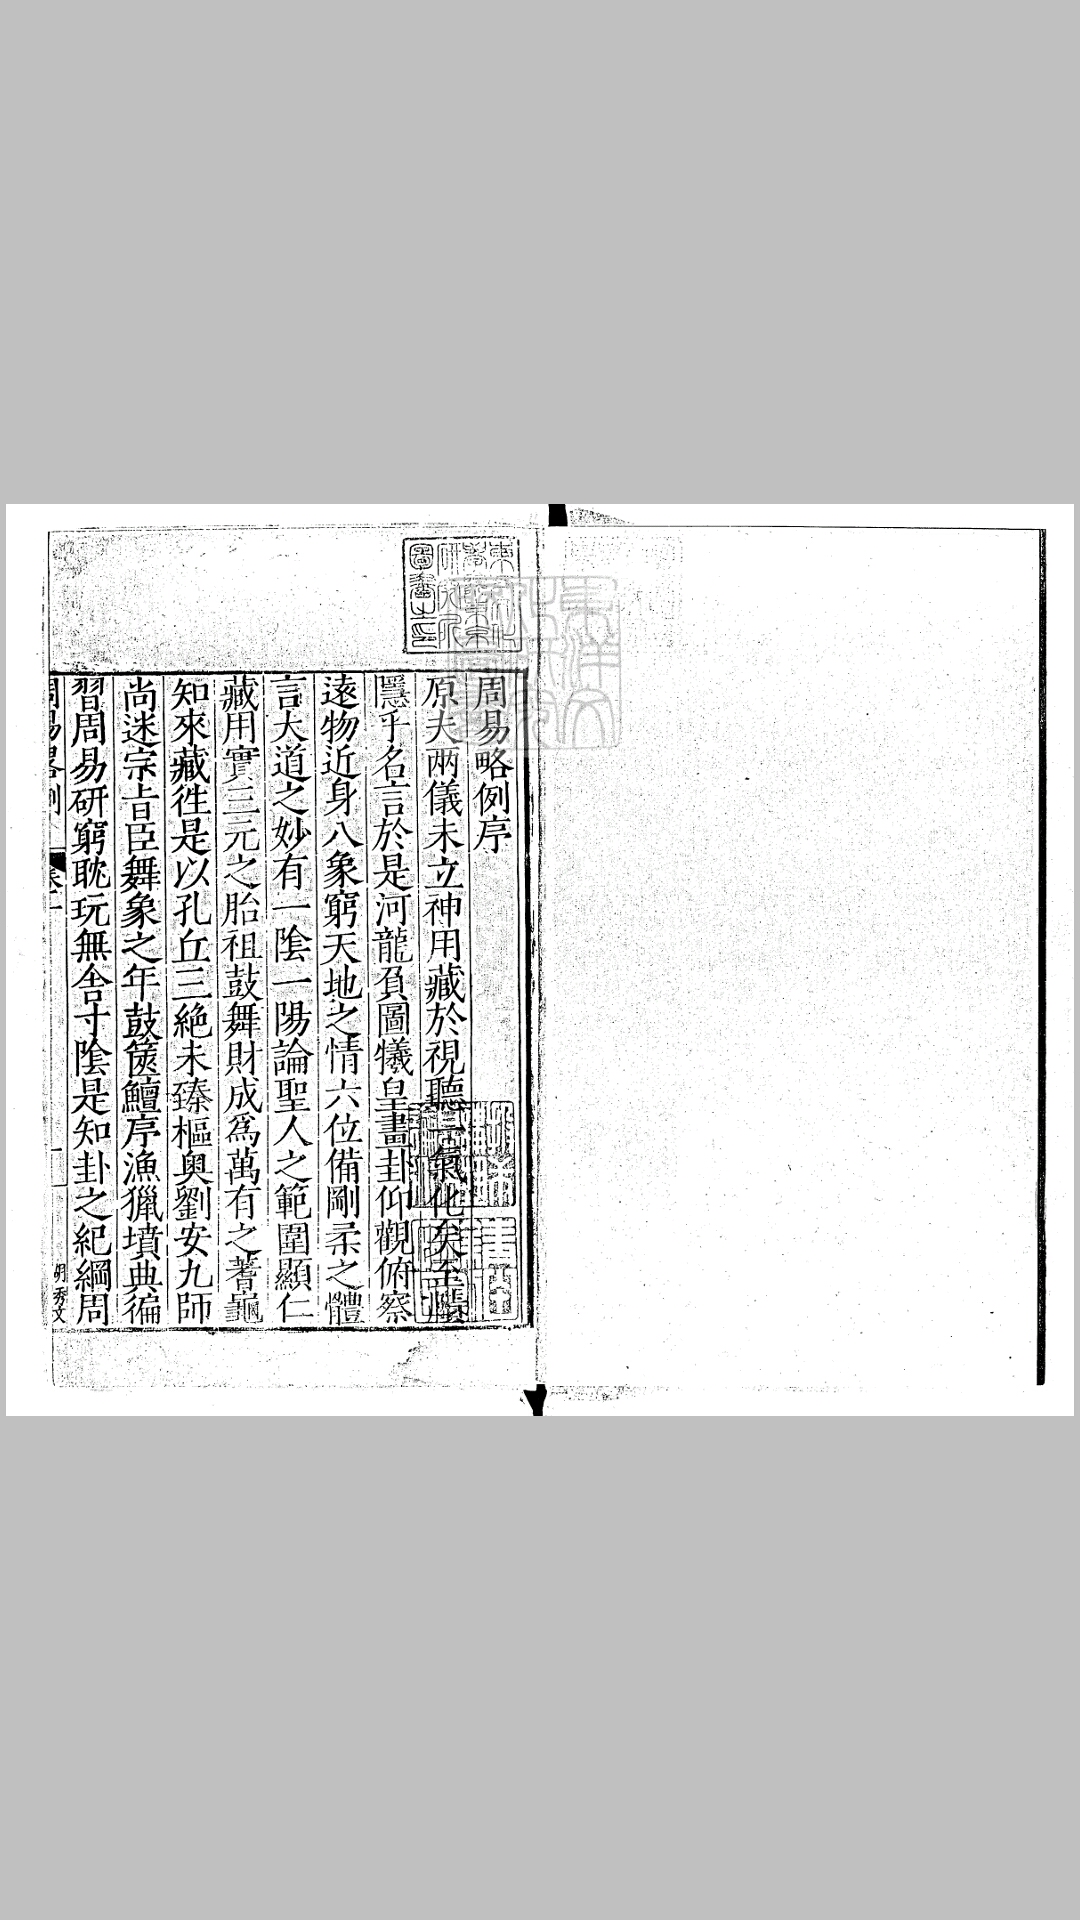 周易略例序
原夫兩儀未立神用藏於視聽一氣化矣至賾
隱乎名言於是河龍負圖犧皇畫卦仰觀俯察
遠物近身八象窮天地之情六位備剛柔之體
言大道之妙有一陰一陽論聖人之範圍顯仁
藏用實三元之胎祖鼓舞財成爲萬有之蓍龜
知來藏徃是以孔丘三絶未臻樞奥劉安九師
尚迷宗旨臣舞象之年鼓篋鱣序漁獵墳典徧
習周易研窮耽玩無舍寸陰是知卦之紀綱周
周易畧例
一
明秀文